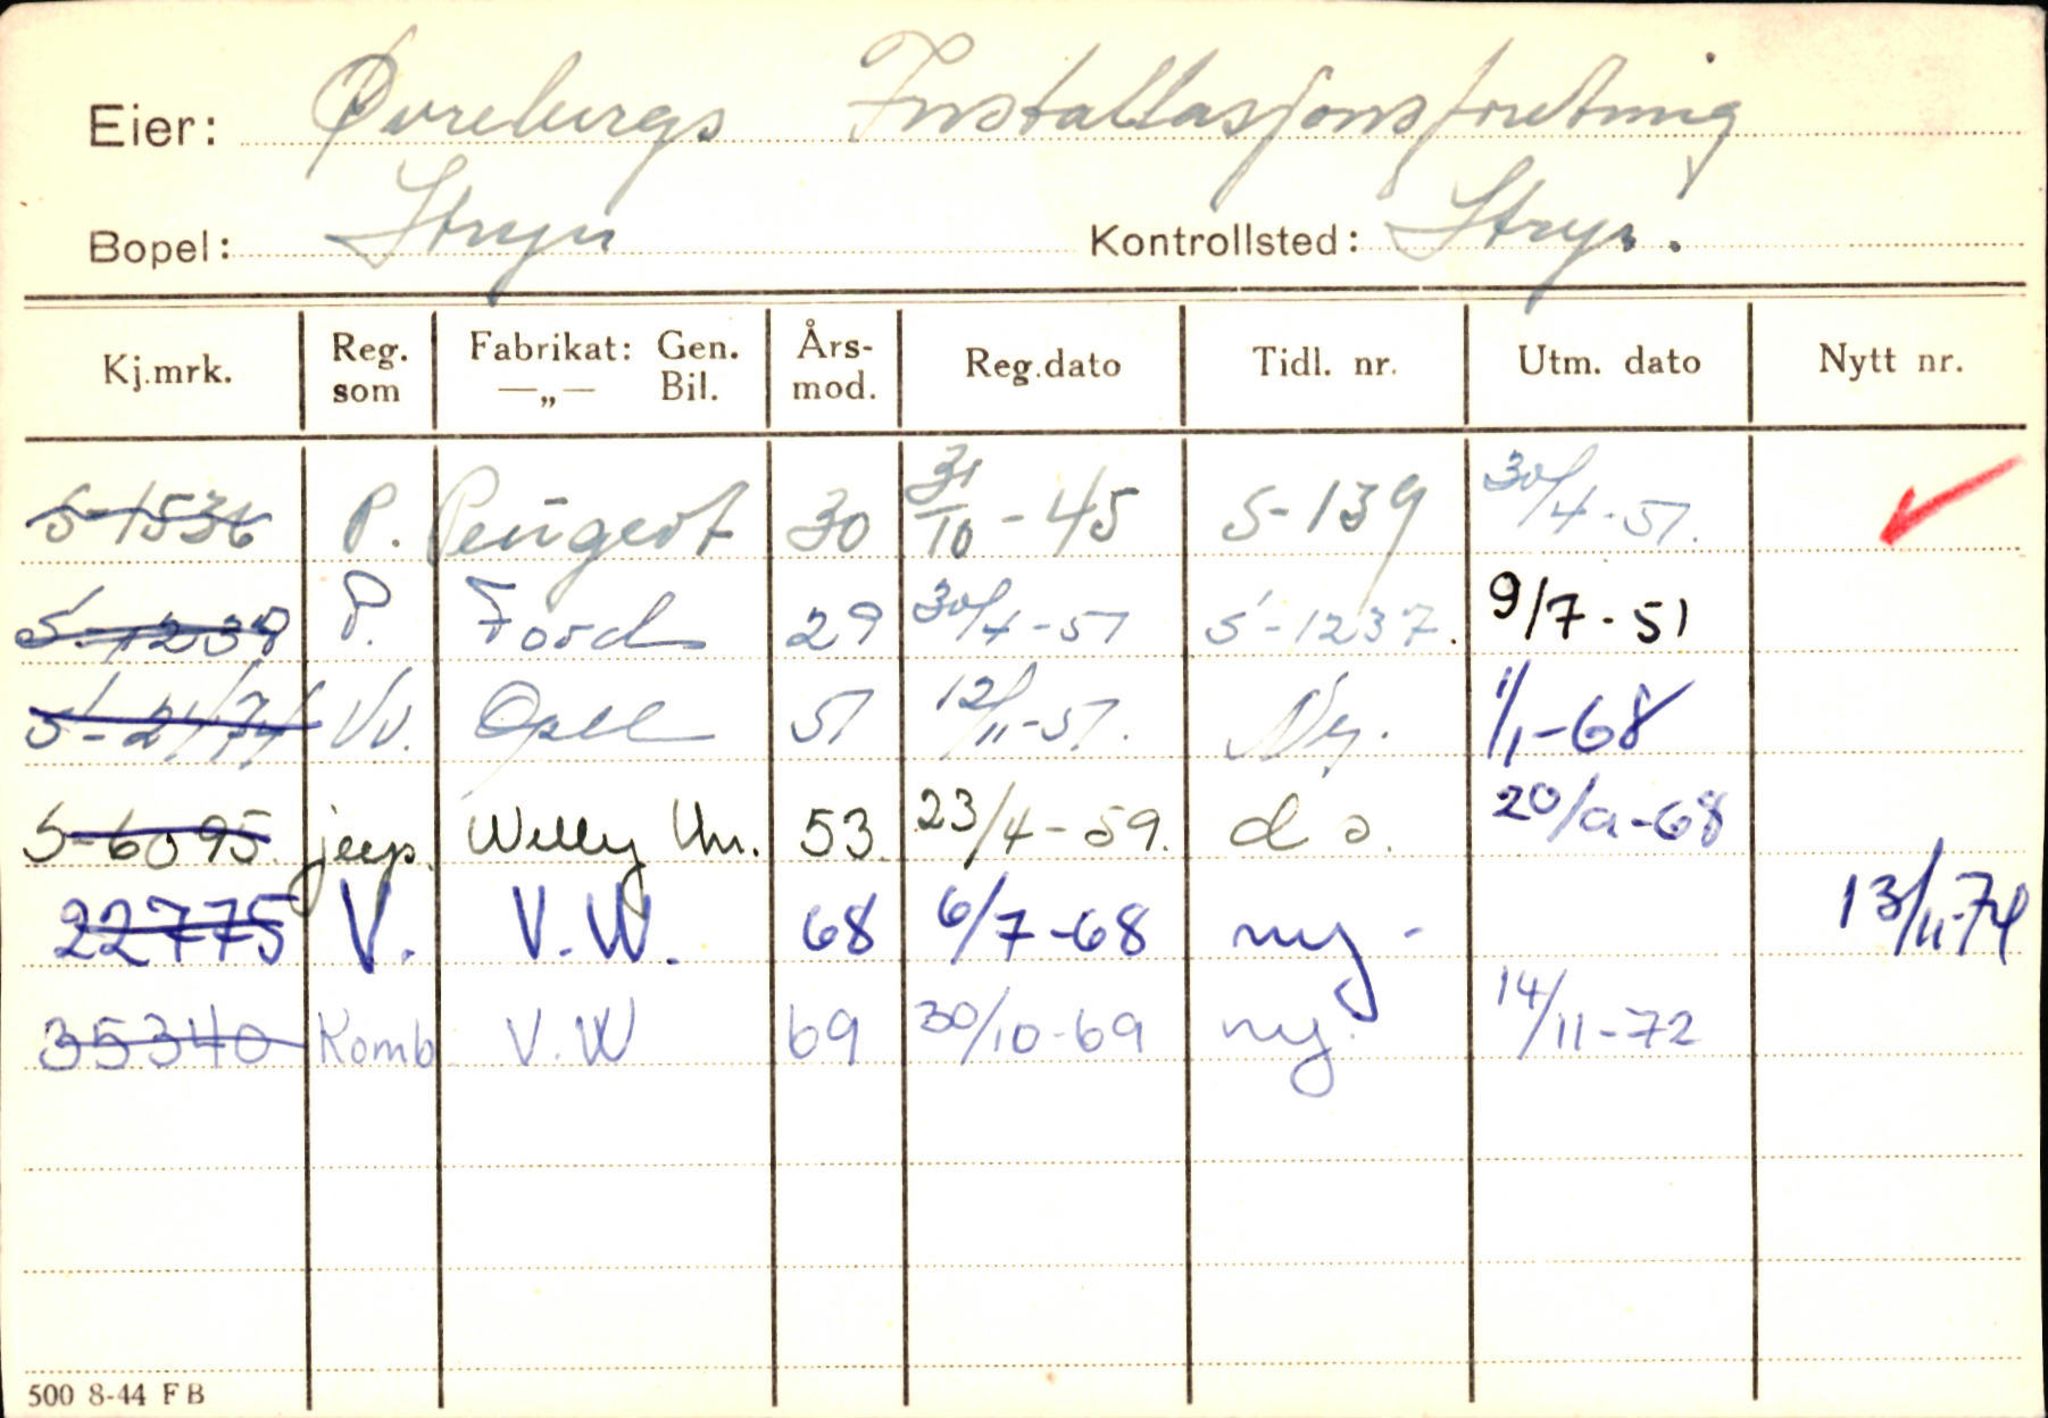 Eier: Øvrebergs Installasjonsforretning
Bopel: Stryn Kontrollsted: Stryn.
Kj.mrk. Reg. som Fabrikat: Gen. —„— Bil. Års-mod. Reg.dato Tidl. nr. Utm. dato Nytt nr.
S-1536 P. Peugeot 30 31/10-45 S-139 30/4-51.
P. Ford 29 30/4-51 S-1237. 9/7-51
Vv. Opel 51 12/11-51. Ny. 1/1-68
S-6095. jeep. Willy Un. 53. 23/4-59. do. 20/9-68
22775 V. V.W. 68 6/7-68 ny - 13/11-74
35340 Komb V.W 69 30/10-69 ny. 14/11-72
500 8-44 FB